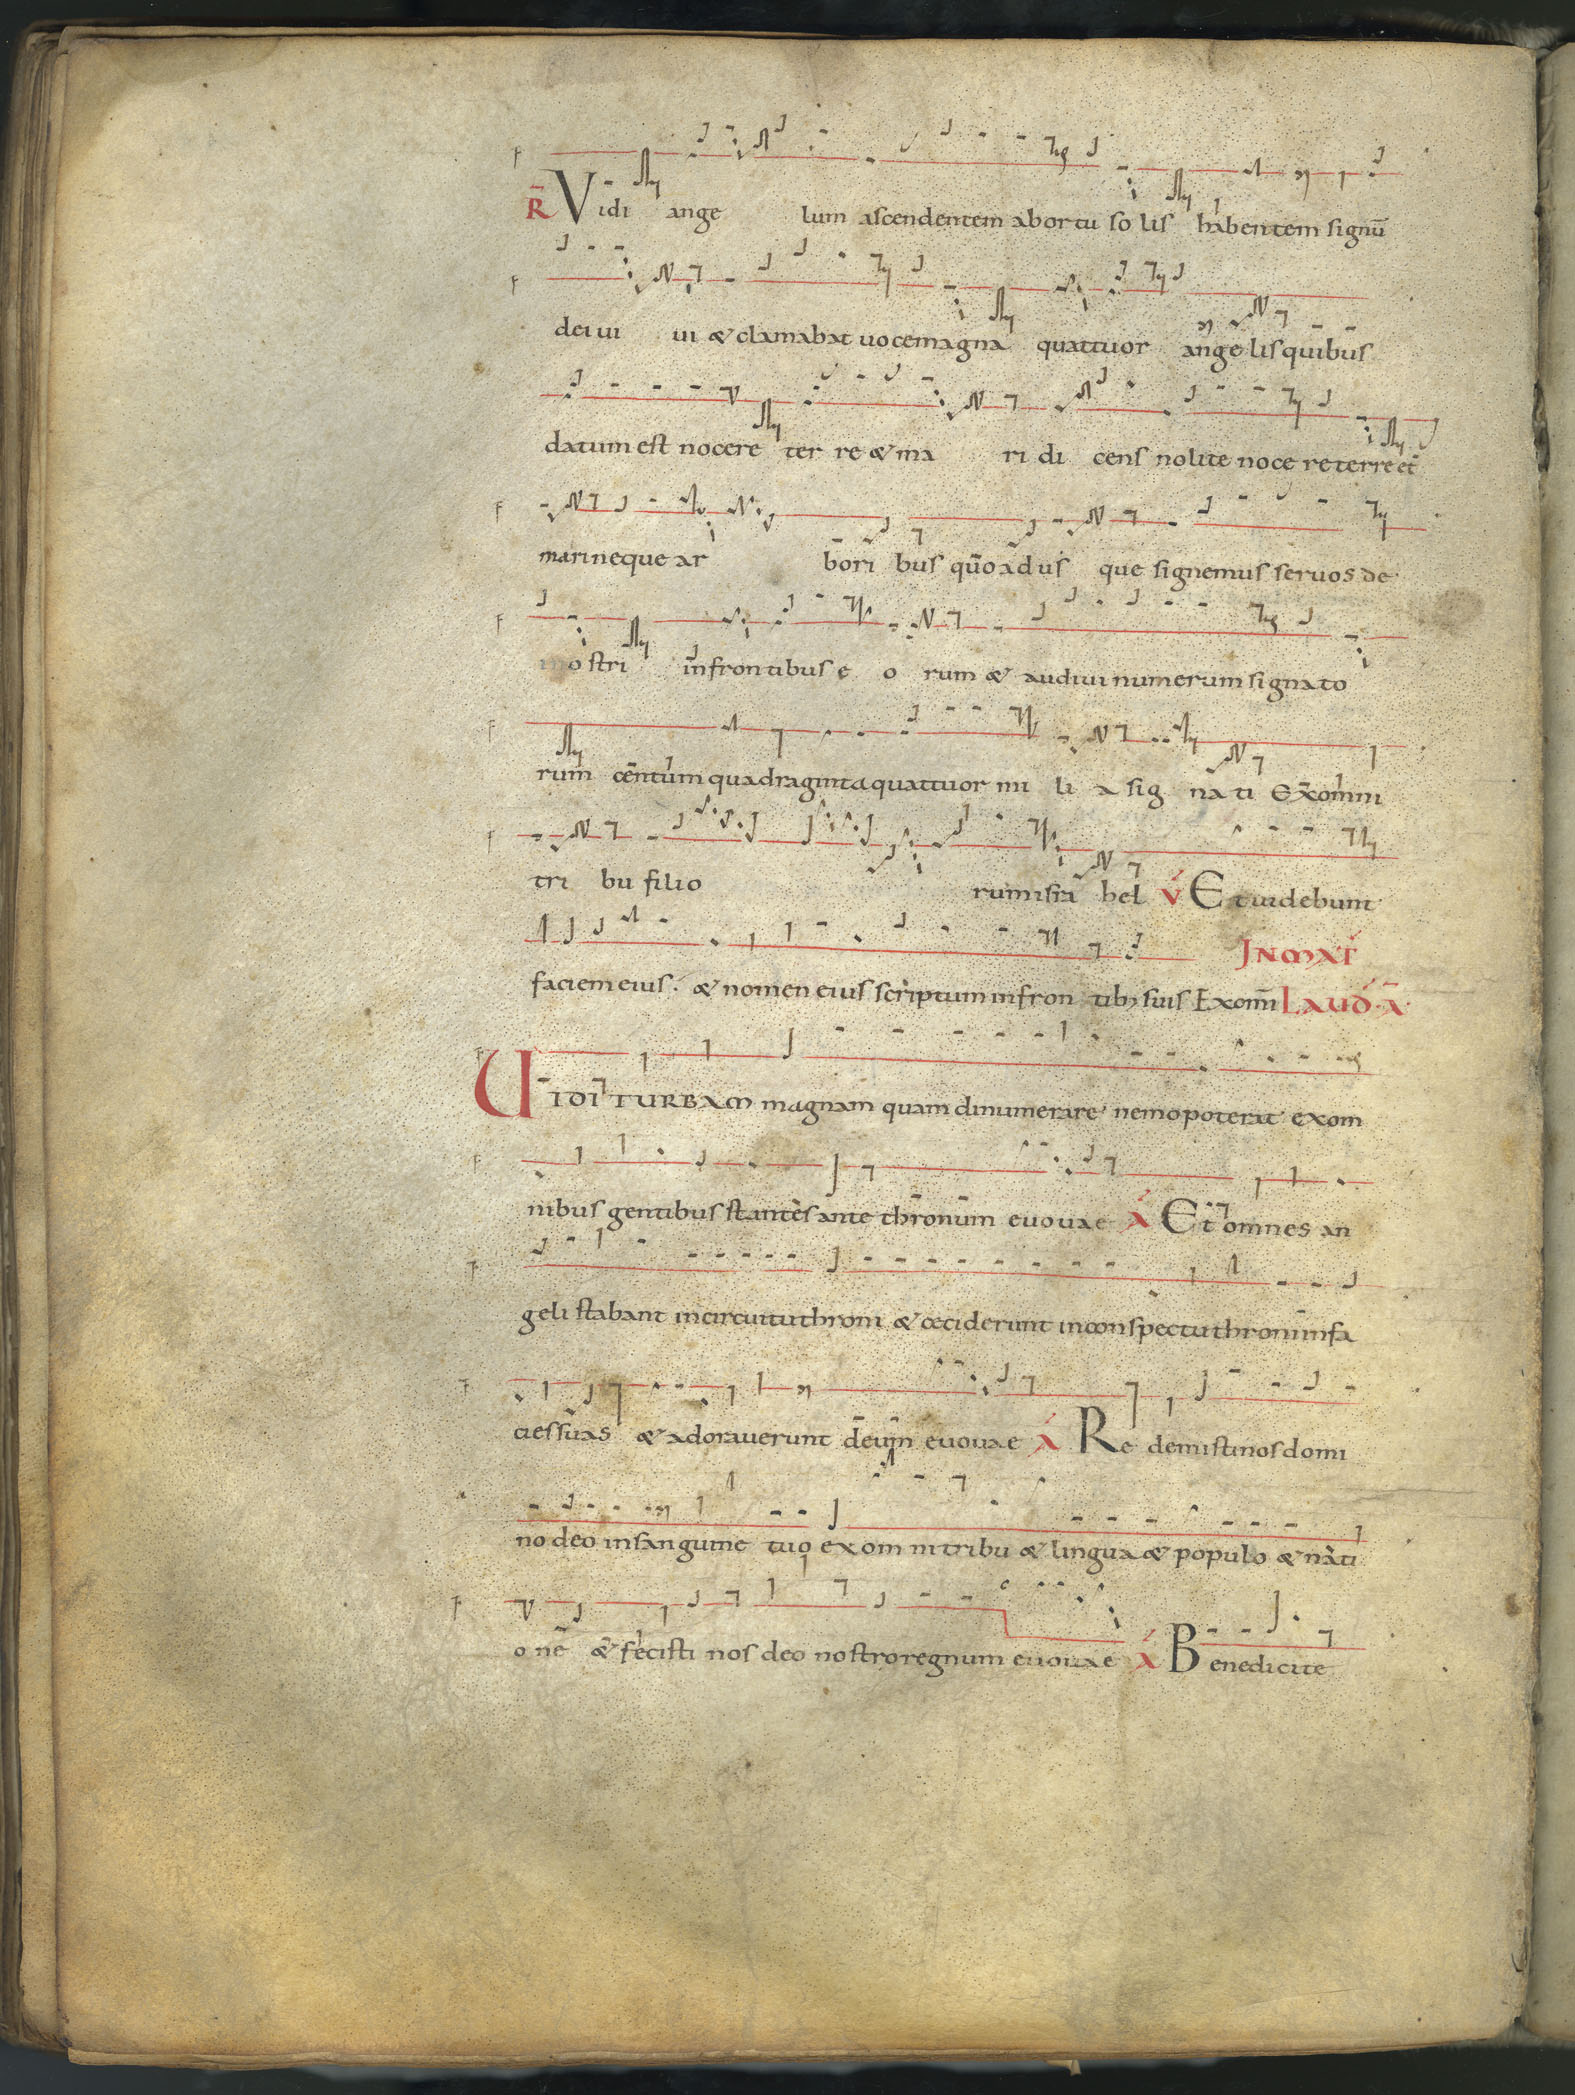 R̄ Vidi ange lum ascendentem abortu so lis habentem signū
dei ui ui & clamabat uocemagna quattuor angelis quibus
datum est nocere ter re & ma ri di cens nolite noce reterre et
marineque ar bori bus quoadus que signemus seruos de
i no stri infrontibus e o rum & audiui numerum signato
rum centum quadraginta quattuor mi li a sig na ti Exomni
tri bu filio rum isra hel V Et uidebunt
faciem eius. & nomen eius scriptum infron tib; suis Exomī
IN MAT
LAUD. A
UIDI TURBAM magnam quam dinumerare nemo poterat exom
nibus gentibus stantes ante thronum euouae A Et omnes an
geli stabant incircuitu throni & ceciderunt inconspectu throni infa
cies suas & adorauerunt deum euouae A Re demisti nos domi
ne deo insanguine tuo exom ni tribu & lingua & populo & nati
o ne & fecisti nos deo nostro regnum euouae A Benedicite